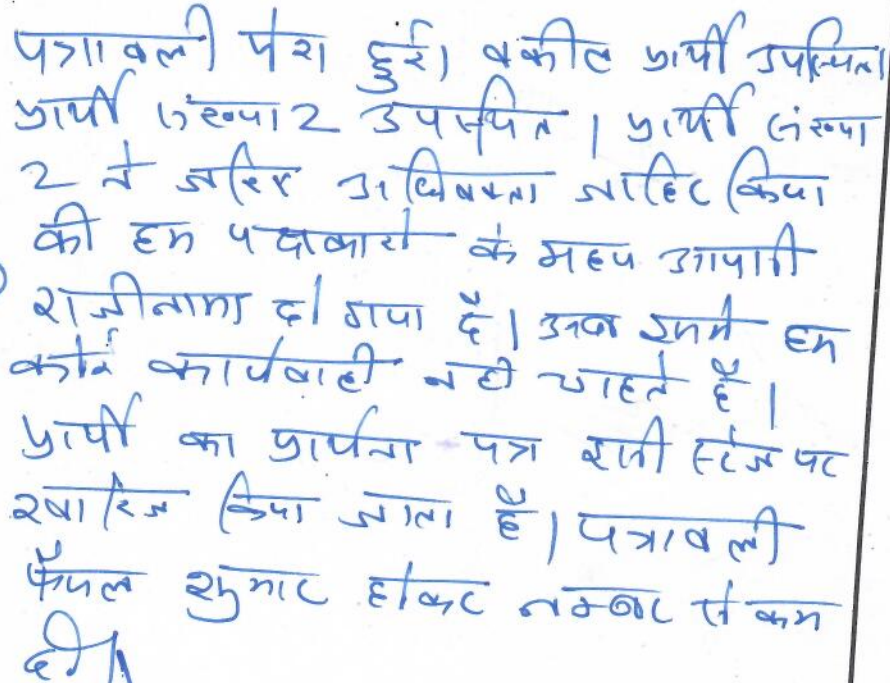 पत्रावली पेश हुई। वकील प्रार्थी उपस्थित।
प्रार्थी संख्या 2 उपस्थित। प्रार्थी संख्या
2 ने जरिए अधिवक्ता जाहिर किया
की हम पक्षकारों के मध्य आपसी
राजीनामा हो गया है। अब इसमें हम
कोई कार्यवाही नहीं चाहते है।
प्रार्थी का प्रार्थना पत्र इसी स्टेज पर
खारिज किया जाता है। पत्रावली
फैसल शुमार होकर नम्बर से कम
हो।